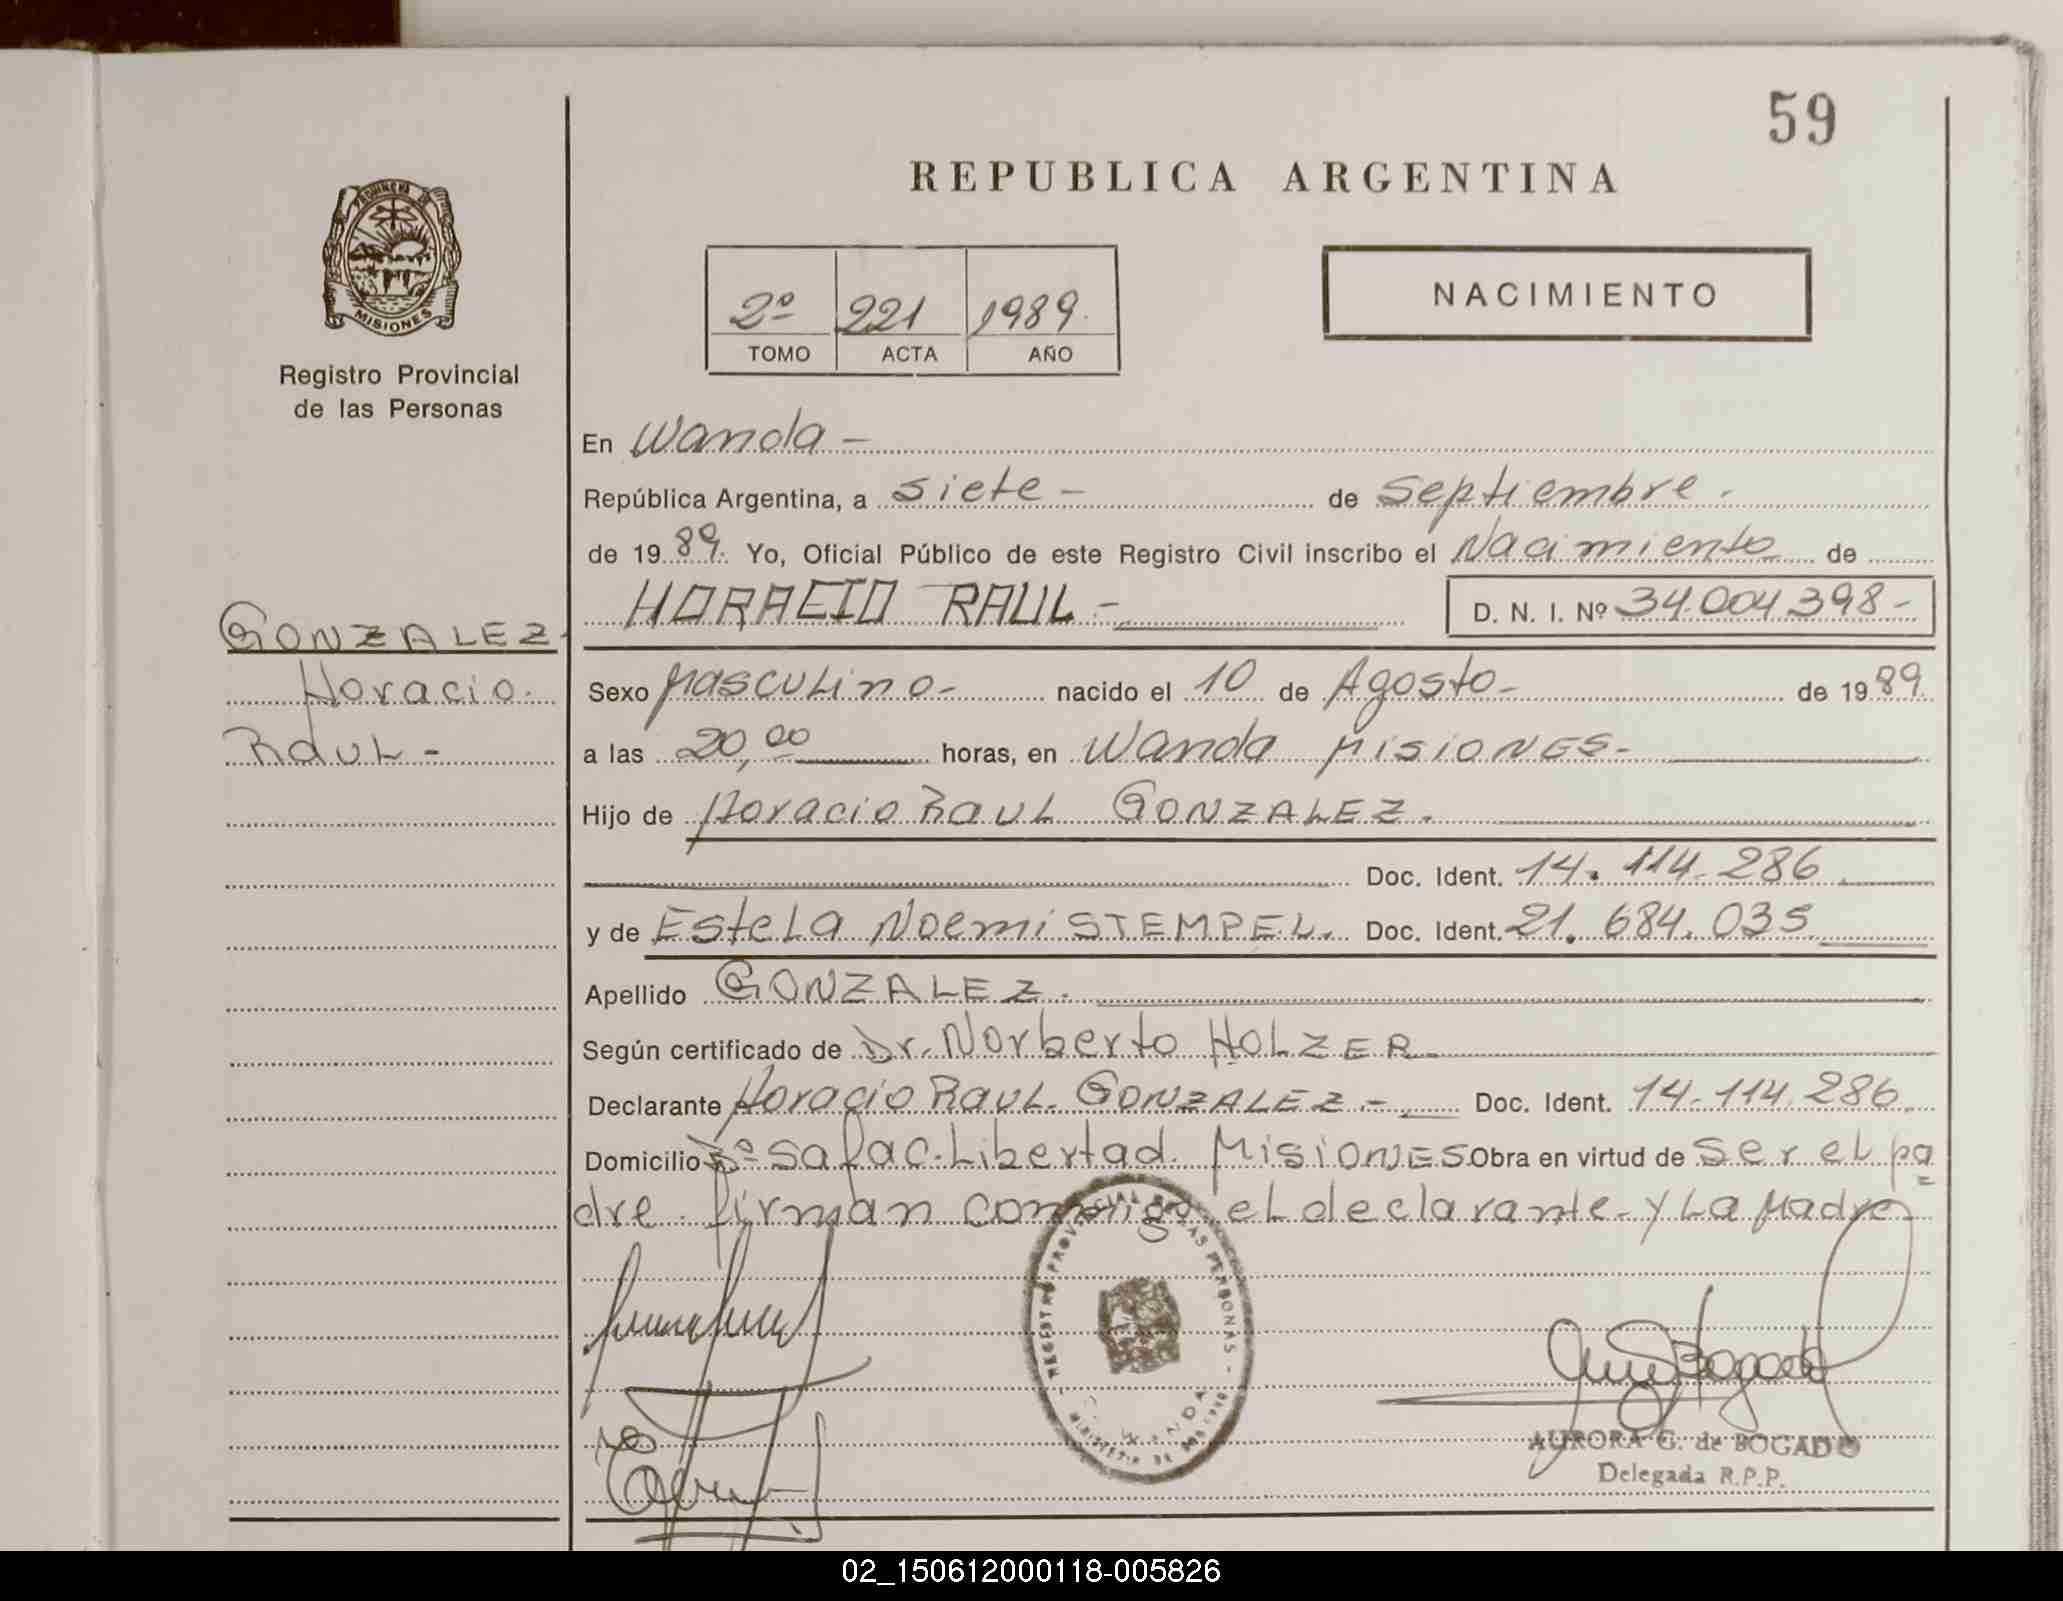 59
REPUBLICA ARGENTINA
PROVINCIA DE
MISIONES
Registro Provincial
de las Personas
2º 221 1989.
TOMO ACTA AÑO
NACIMIENTO
En Wanda -
República Argentina, a siete - de Septiembre.
de 1989. Yo, Oficial Público de este Registro Civil inscribo el Nacimiento de
HORACIO RAUL - D. N. I. Nº 34.004.398-
GONZALEZ-
Horacio.
Raul -
Sexo Masculino- nacido el 10 de Agosto- de 1989.
a las 20,00 horas, en Wanda MISIONES-
Hijo de Horacio Raul GONZALEZ.
Doc. Ident. 14. 114. 286
y de Estela Noemi STEMPEL. Doc. Ident. 21. 684. 035
Apellido GONZALEZ.
Según certificado de Dr. Norberto HOLZER-
Declarante Horacio Raul. GONZALEZ.- Doc. Ident. 14-114.286
Domicilio Libertad. MISIONES Obra en virtud de ser el pa
dre. firman conmigo el declarante- y La Madre
REGISTRO PROVINCIAL DE LAS PERSONAS -
WANDA
MINISTERIO DE GOBIERNO
AURORA G. de BOGADO
Delegada R.P.P.
02_150612000118-005826